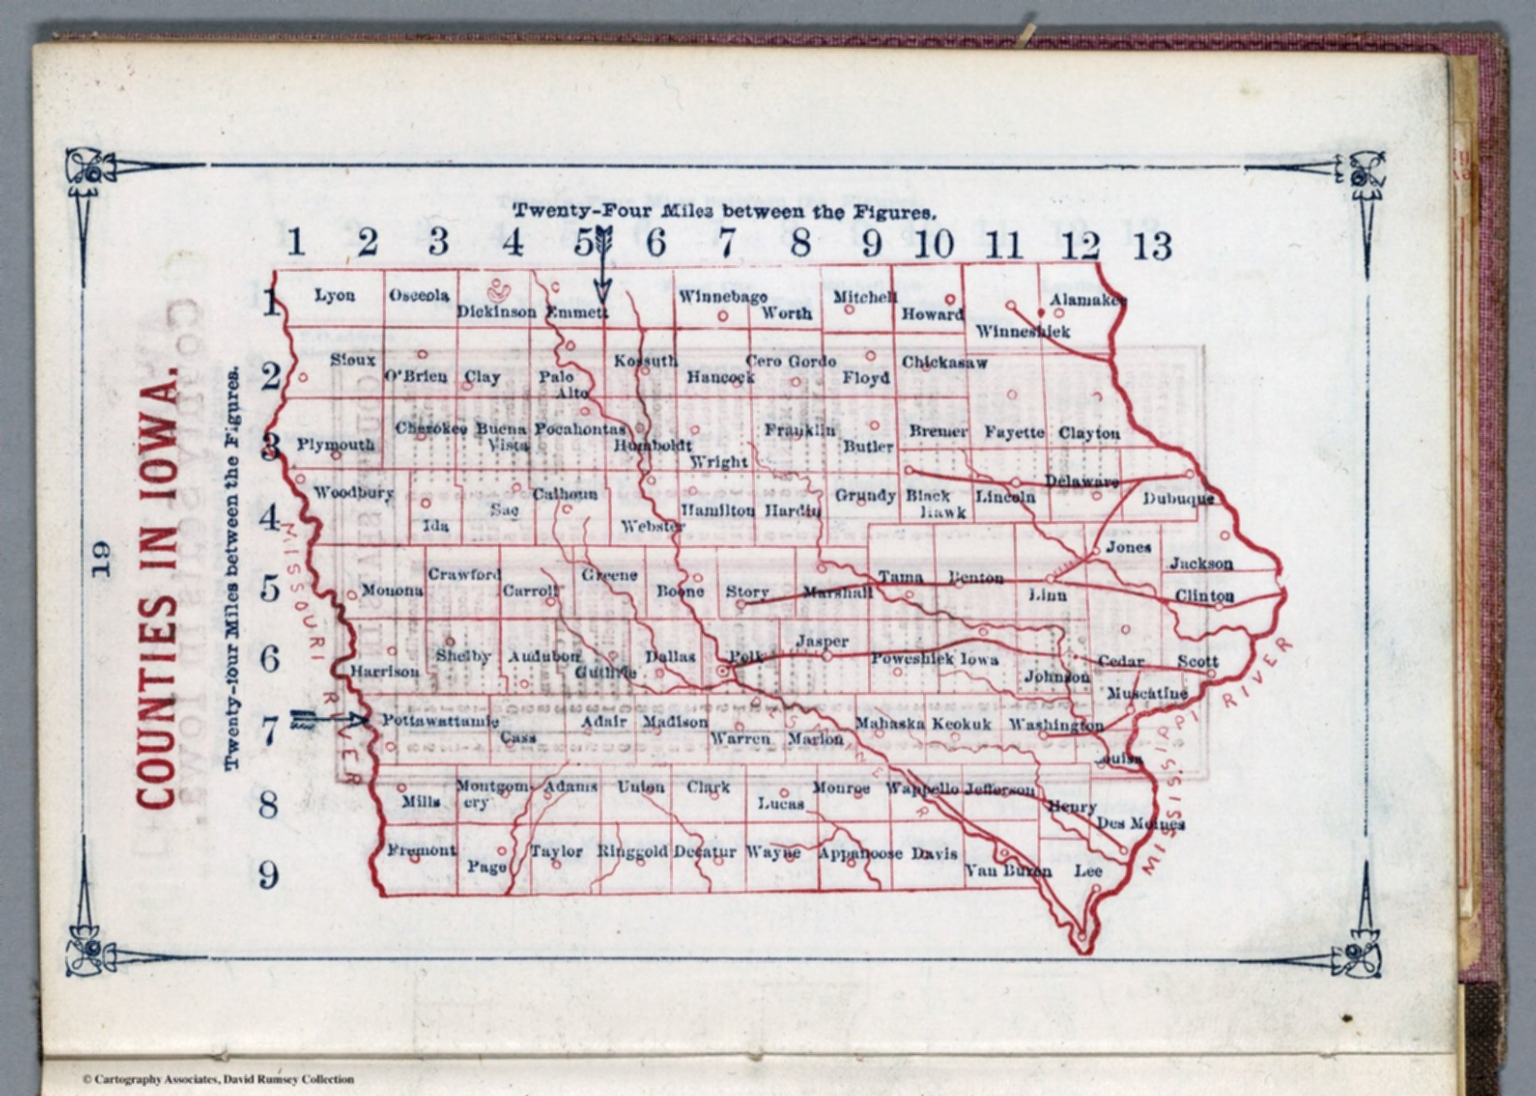 Twenty-Four Miles between the Figures.
1 2 3 4 5 6 7 8 9 10 11 12 13
COUNTIES IN IOWA.
19
Twenty-four Miles between the Figures.
1
Lyon Osceola Dickinson Emmett Winnebago Worth Mitchell Howard Winneshiek Alamakee
2
Sioux O'Brien Clay Palo Alto Kossuth Hancock Cero Gordo Floyd Chickasaw
3
Plymouth Cherokee Buena Vista Pocahontas Humboldt Wright Franklin Butler Bremer Fayette Clayton
4
Woodbury Ida Sac Calhoun Webster Hamilton Hardin Grundy Black Hawk Lincoln Delaware Dubuque
5
Monona Crawford Carroll Greene Boone Story Marshall Tama Benton Linn Jones Jackson Clinton
6
Harrison Shelby Audubon Guthrie Dallas Polk Jasper Poweshiek Iowa Johnson Cedar Scott
Muscatine
7
Pottawattamie Cass Adair Madison Warren Marion Mahaska Keokuk Washington Louisa
8
Mills Montgomery Adams Union Clark Lucas Monroe Wappello Jefferson Henry Des Moines
9
Fremont Page Taylor Ringgold Decatur Wayne Appanoose Davis Van Buren Lee
MISSOURI RIVER
DES MOINES RIVER
MISSISSIPPI RIVER
© Cartography Associates, David Rumsey Collection